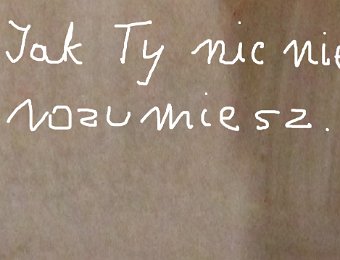 Jak Ty nic nie
rozumiesz.